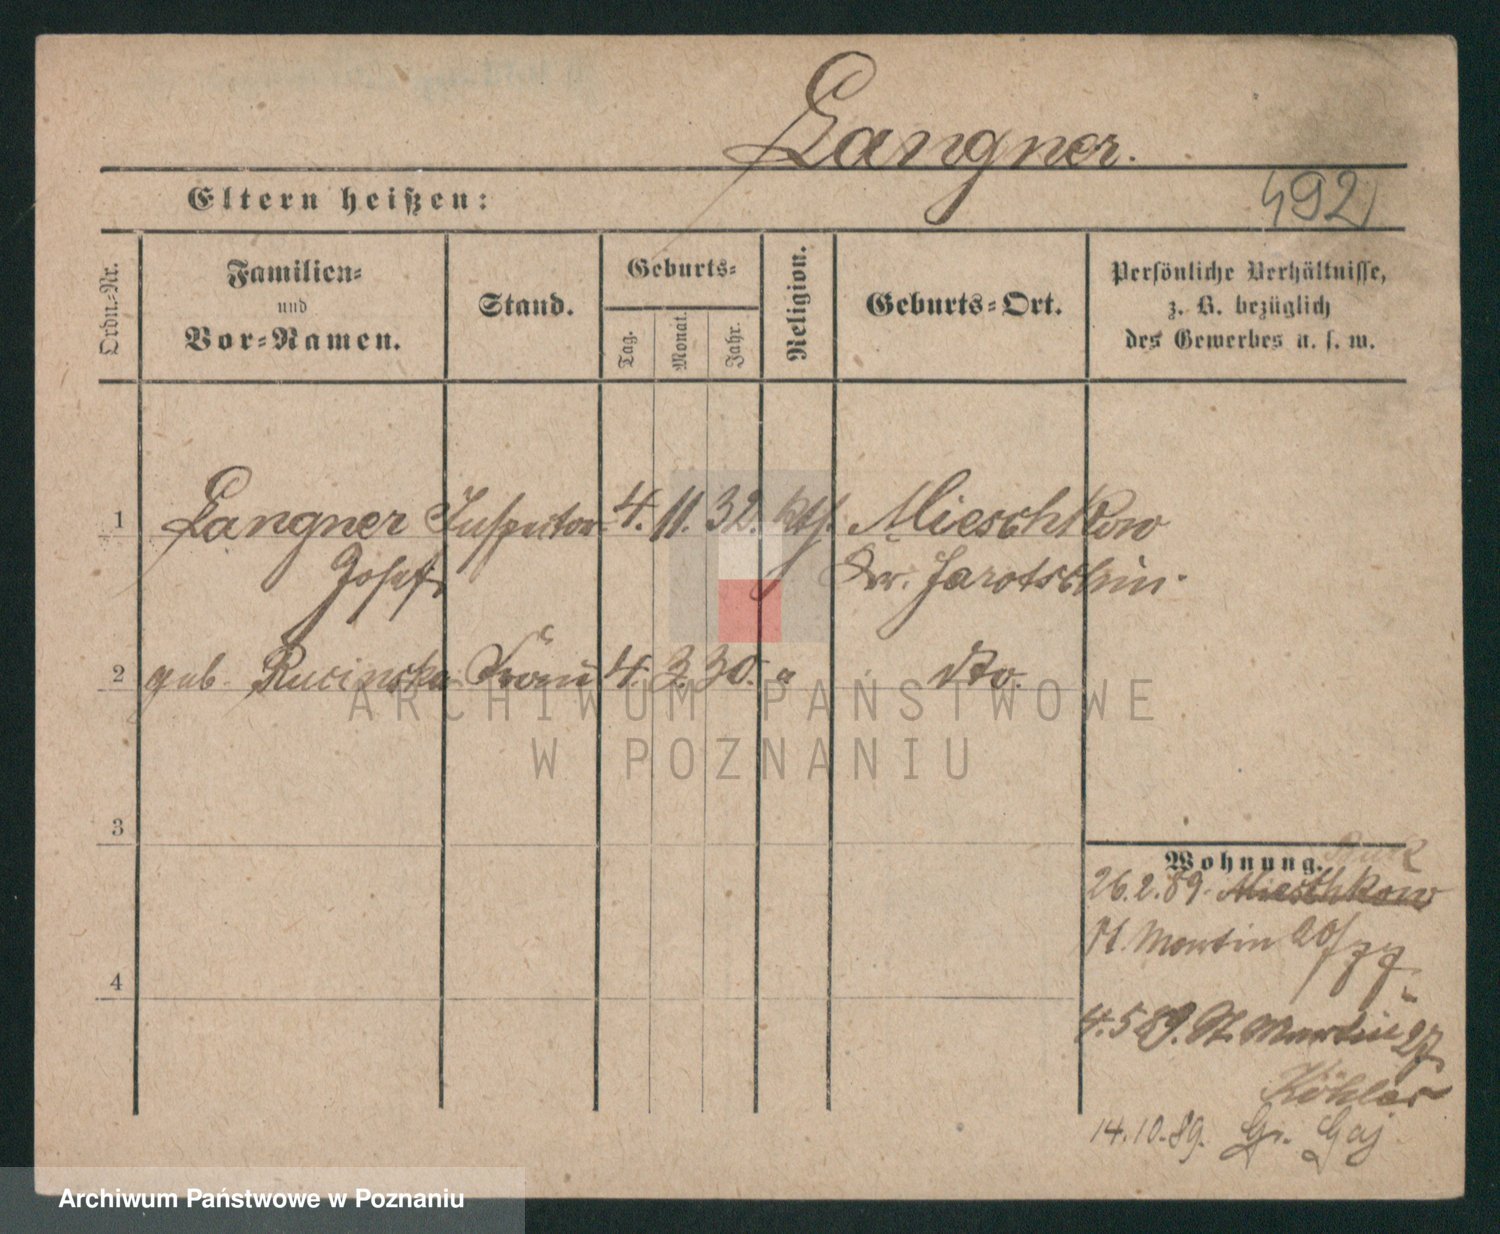 Langner.
Eltern heißen:
492
Ordn.-Nr.
Familien-
und
Vor-Namen.
Stand.
Geburts-
Tag.
Monat.
Jahr.
Religion.
Geburts-Ort.
Persönliche Verhältnisse,
z. B. bezüglich
des Gewerbes u. s. w.
1 Langner Inspektor 4. 11. 32. kth. Mieschkow
Josef Kr. Jarotschin.
2 geb. Rucinska Frau 4. 3. 30. " dto.
ARCHIWUM PAŃSTWOWE
W POZNANIU
3
Wohnung.
26.2.89. Mieschkow
St. Martin 20/
4
4.5 89. St. Martin 27
Köhler
14.10.89. Gr. Gaj
Archiwum Państwowe w Poznaniu